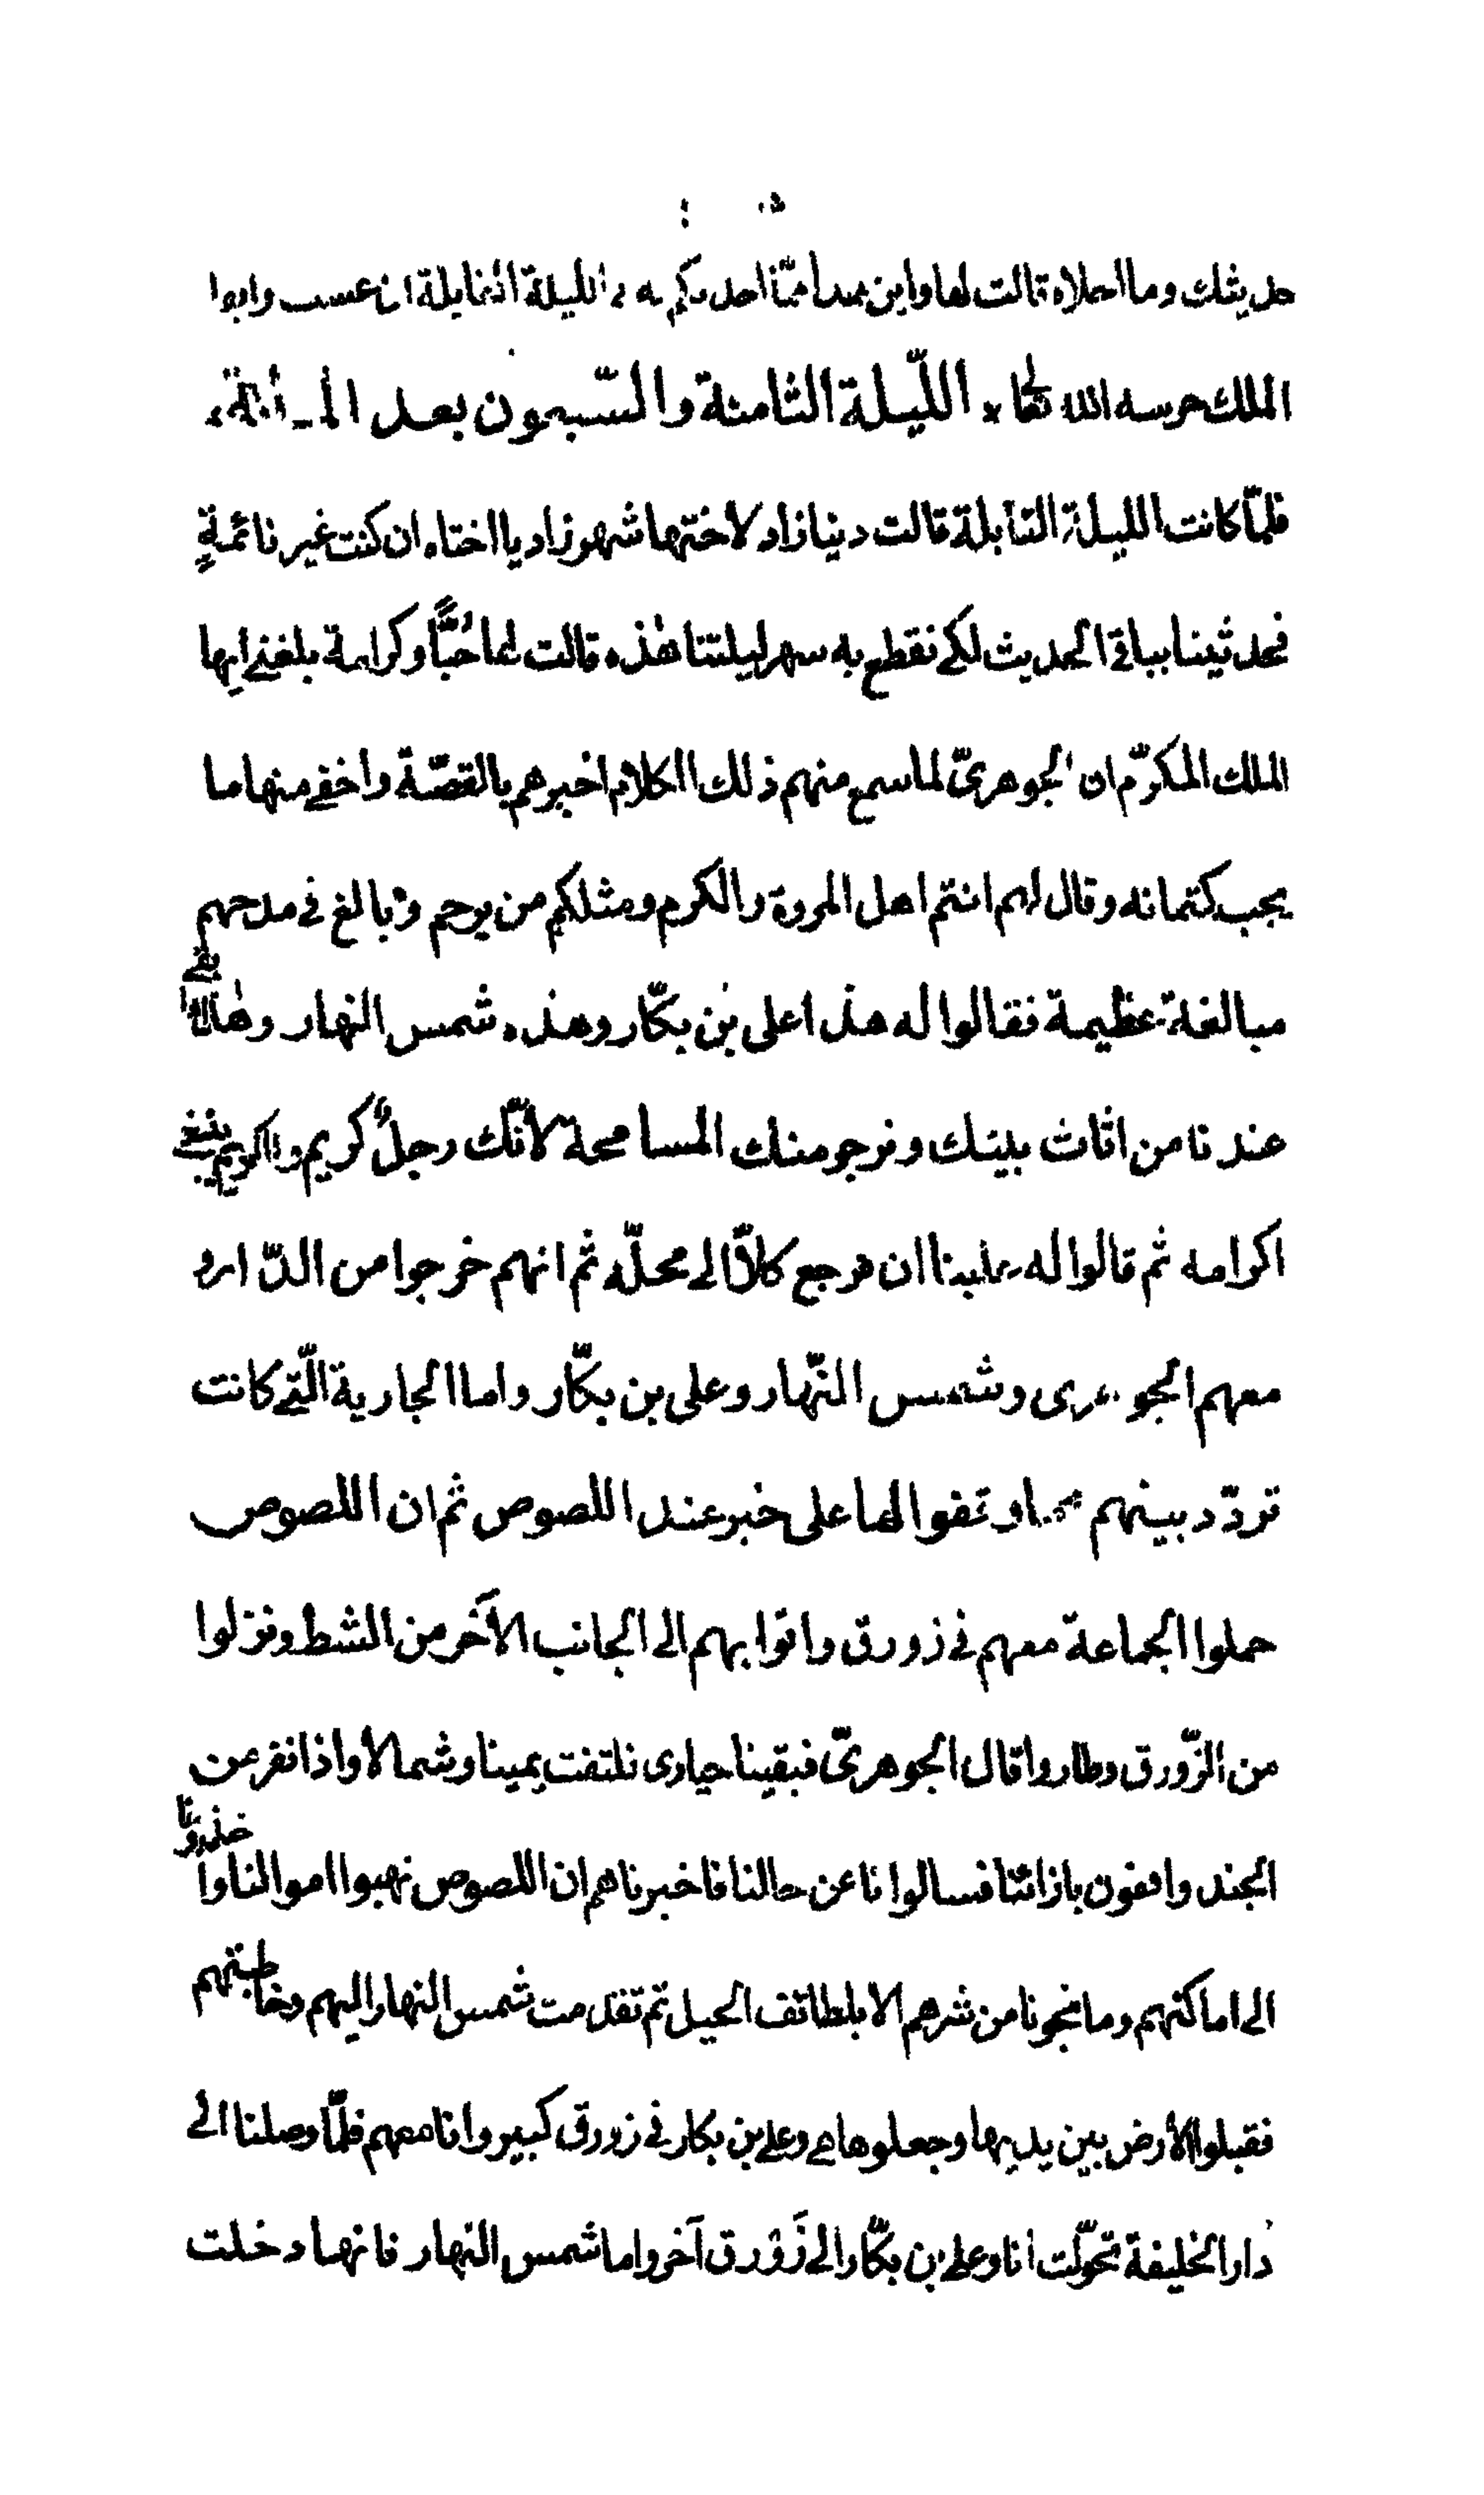 حديثك وما احلاه قالت لها واين هذا ممّا احدثكم به فى الليلة القابلة ان عشت وابقا
الملك حرسه الله كماء الليّلة الثامنة والسّبعون بعد المائة
فلمّا كانت الليلة القابلة قالت دينازاد لاختها شهرزاد يا اختاه ان كنت غير نائمةٍ
فحدثينا بباقى الحديث لكى نقطع به سهر ليلتنا هذه قالت لها حبًّا وكرامة بلغنى ايها
الملك المكرّم ان الجوهرىّ لما سمع منهم ذلك الكلام اخبرهم بالقصّة واخفى منها ما
يجب كتمانه وقال لهم انتم اهل المروة والكرم ومثلكم من يرحم وبالغ فى مدحهم
مبالغة عظيمة فقالوا له هذا على بن بكّار وهذه شمس النهار وهات الّتى
عندنا من اثاث بيتك ونرجو منك المسامحة لانّك رجلٌ كريم والكريم ينبغى
اكرامه ثم قالوا له علينا ان نرجع كلاّ الى محلّه ثم انهم خرجوا من الدّار و
معهم الجوهرى وشمس النّهار وعلى بن بكّار واما الجارية الّتى كانت
تردّد بينهم فما وقفوا لها على خبر عند اللصوص ثم ان اللصوص
حملوا الجماعة معهم فى زورق واتوا بهم الى الجانب الآخر من الشط ونزلوا
من الزّورق وطاروا قال الجوهرىّ فبقينا حيارى نلتفت يمينا وشمالا واذا نفر من
الجند واقفون بازائنا فسالوا نا عن حالنا فاخبرناهم ان اللصوص نهبوا اموالنا واخذونا
الى اماكنهم وما نجونا من شرهم الا بلطائف الحيل ثم تقدمت شمس النهار اليهم وخاطبتهم
فقبلوا الأرض بين يديها وجعلوها هى وعلى بن بكار فى زورق كبير وانا معهم فلمّا وصلنا الى
دار الخليفة تحوّلت انا وعلى بن بكّار الى زَوْرق آخر واما شمس النّهار فانها دخلت